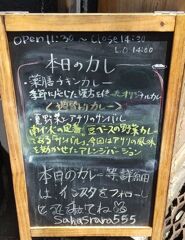 open 11:30 ～ close 14:30
L.O 14:00
本日のカレー
・薬膳チキンカレー
季節に応じた漢方を使ったオリジナルカレー
・夏野菜とアサリのサンバル
南インドの定番、豆ベースの野菜カレー
である「サンバル」今回はアサリの風味
を効かせたアレンジバージョン
本日のカレー等詳細
はインスタをフォローし
て
てね
Sahasrara555